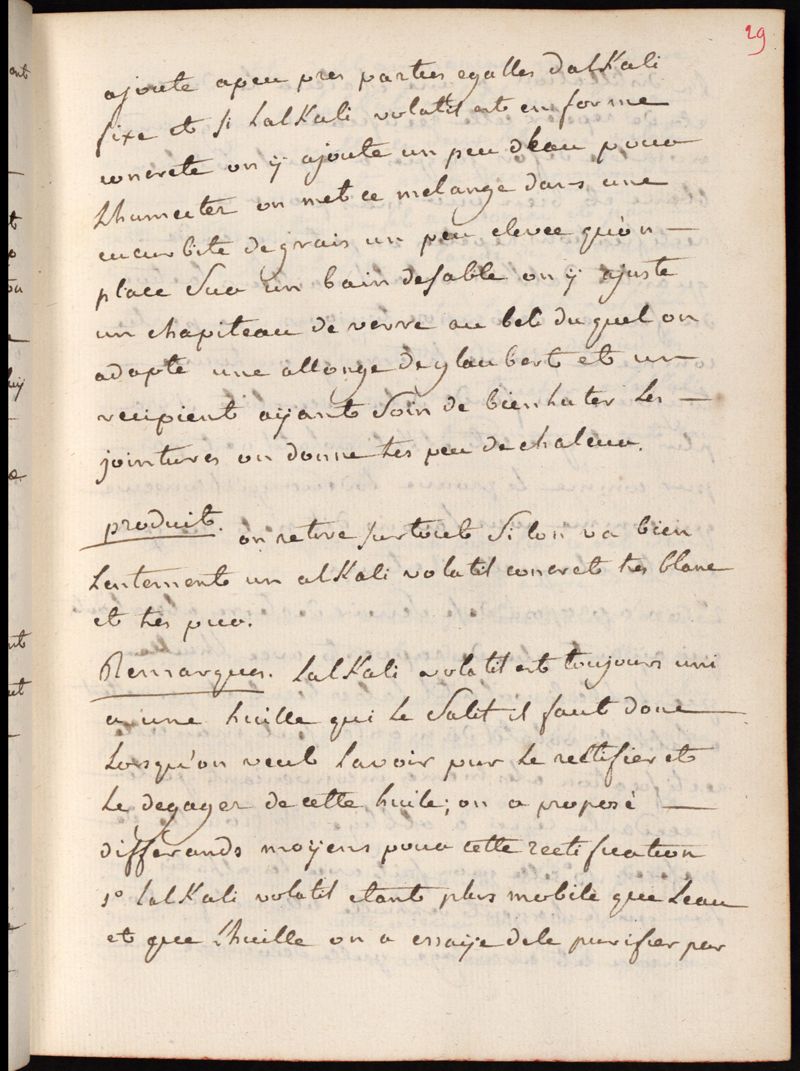 29
ajoute apeu pres parties egalles dalKali
fixe et si LalKali volatil est en forme
concrete on y ajoute un peu deau pour
Lhumecter on met ce melange dans une
cucurbite de grais un peu elevée qu'on —
place Sur un bain de sable on y ajuste
un chapiteau de verre au bec du quel on
adapte une allonge de glaubert et un
recipient ayant Soin de bien luter Les —
jointures on donne tres peu de chaleur.
produit. on retire surtout Si lon va bien
Lentement un alKali volatil concret tres blanc
et tres pur.
Remarques. LalKali volatil est toujours uni
a une huille qui Le Salit il faut donc —
Lorsqu'on veut Lavoir pur Le rectifier et
Le degager de cette huile; on a proposé —
differands moyens pour cette rectification
1° LalKali volatil etant plus mobile que Leau
et que Lhuille on a essaÿe de le purifier par